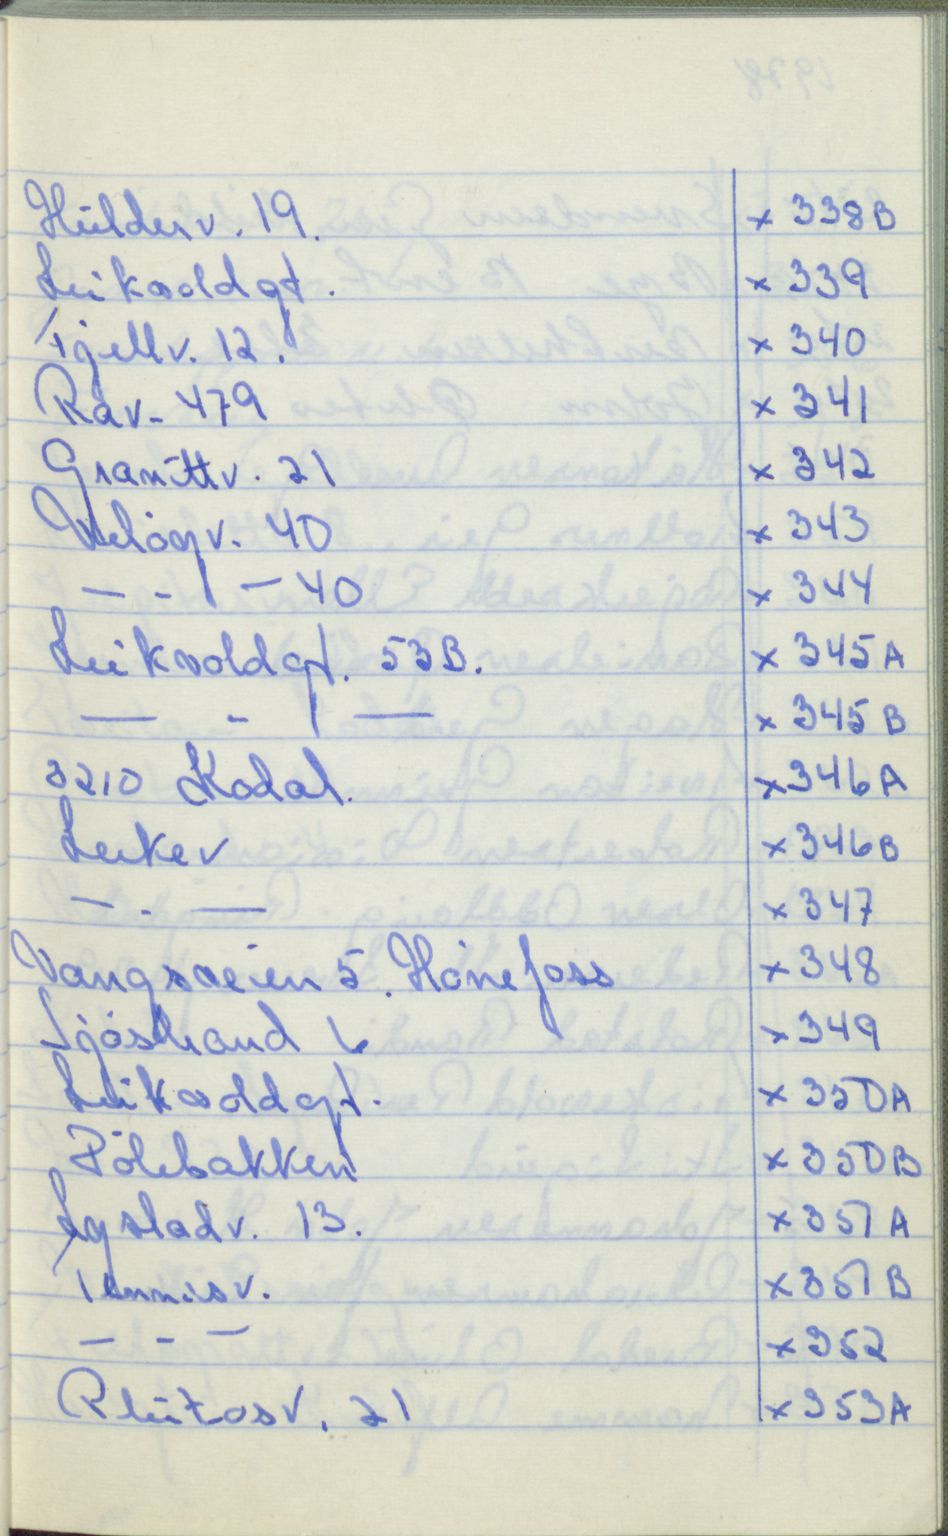 Hulderv. 19. x 338B
Leikvoldgt. x 339
Fjellv. 12. x 340
Rav. 479 x 341
Granittv. 21 x 342
40 x 343
— - | — 40 x 344
Leikvoldgt. 53B. x 345A
— - | — x 345B
3210 Kodal. x 346A
x 346B
— - — x 347
Vangsveien 5. Hönefoss x 348
Sjöstrand 6 x 349
Leikvoldgt. x 350A
Pölebakken x 350B
Lystadv. 13. x 351A
Tennisv. x 351B
— - — x 352
Plutosv. 21 x 353A